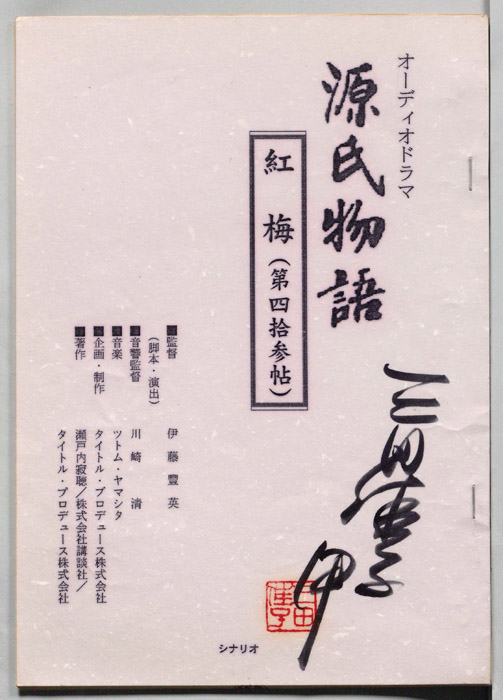 オーディオドラマ
源氏物語
紅梅(第四拾参帖)
■監督 伊藤豊英
(脚本・演出)
■音響監督 川崎清
■音楽 ツトム・ヤマシタ
■企画・制作 タイトル・プロデュース株式会社
■著作 瀬戸内寂聴/株式会社講談社/
タイトル・プロデュース株式会社
シナリオ